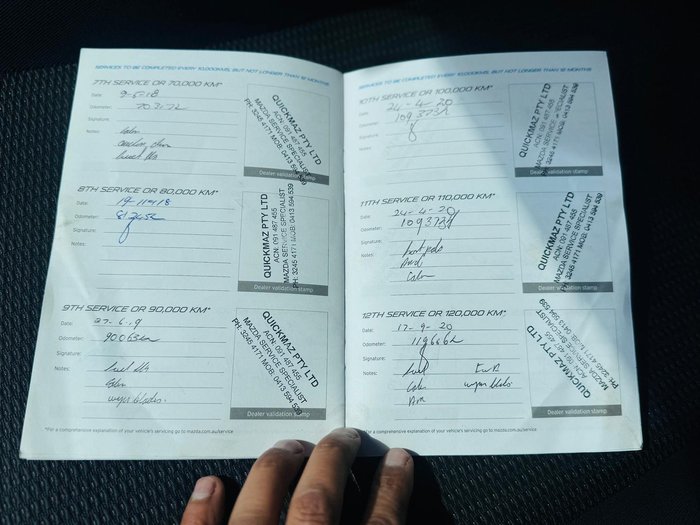 SERVICES TO BE COMPLETED EVERY 10,000KMS, BUT NOT LONGER THAN 12 MONTHS
7TH SERVICE OR 70,000 KM*
Date: 9-5-18
Odometer:
Signature:
Notes:
QUICKMAZ PTY LTD
ACN: 091 487 455
MAZDA SERVICE SPECIALIST
PH: 3245 4171 MOB: 0413 594 539
Dealer validation stamp
8TH SERVICE OR 80,000 KM*
Date: 19-11-18
Odometer:
Signature:
Notes:
QUICKMAZ PTY LTD
ACN: 091 487 455
MAZDA SERVICE SPECIALIST
PH: 3245 4171 MOB: 0413 594 539
Dealer validation stamp
9TH SERVICE OR 90,000 KM*
Date: 27-6-19
Odometer: 90063km
Signature:
Notes:
QUICKMAZ PTY LTD
ACN: 091 487 455
MAZDA SERVICE SPECIALIST
PH: 3245 4171 MOB: 0413 594 539
Dealer validation stamp
*For a comprehensive explanation of your vehicle's servicing go to mazda.com.au/service
SERVICES TO BE COMPLETED EVERY 10,000KMS, BUT NOT LONGER THAN 12 MONTHS
10TH SERVICE OR 100,000 KM*
Date: 24-4-20
Odometer:
Signature:
Notes:
QUICKMAZ PTY LTD
ACN: 091 487 455
MAZDA SERVICE SPECIALIST
PH: 3245 4171 MOB: 0413 594 539
Dealer validation stamp
11TH SERVICE OR 110,000 KM*
Date: 24-4-20
Odometer:
Signature:
Notes:
QUICKMAZ PTY LTD
ACN: 091 487 455
MAZDA SERVICE SPECIALIST
PH: 3245 4171 MOB: 0413 594 539
Dealer validation stamp
12TH SERVICE OR 120,000 KM*
Date: 17-9-20
Odometer:
Signature:
Notes:
QUICKMAZ PTY LTD
ACN: 091 487 455
MAZDA SERVICE SPECIALIST
PH: 3245 4171 MOB: 0413 594 539
Dealer validation stamp
*For a comprehensive explanation of your vehicle's servicing go to mazda.com.au/service